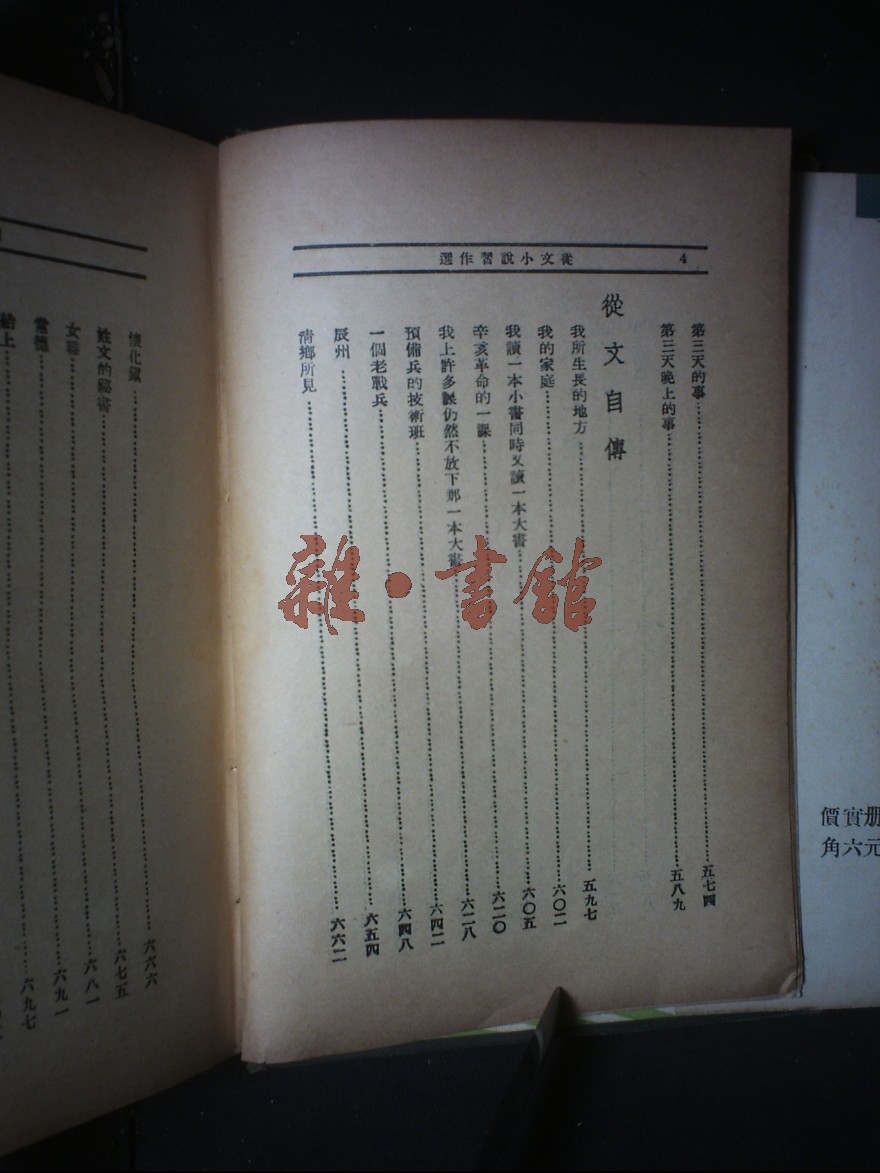 4 從文小說習作選
第三天的事……五七四
第三天晚上的事……五八九
從文自傳
我所生長的地方……五九七
我的家庭……六〇二
我讀一本小書同時又讀一本大書……六〇五
辛亥革命的一課……六二〇
我上許多課仍然不放下那一本大書……六二八
預備兵的技術班……六四二
一個老戰兵……六四八
辰州……六五四
清鄉所見……六六二
懷化鎮……六六六
姓文的秘書……六七五
女難……六八一
常德……六九一
船上……六九七
册實價
元六角
雜·書館